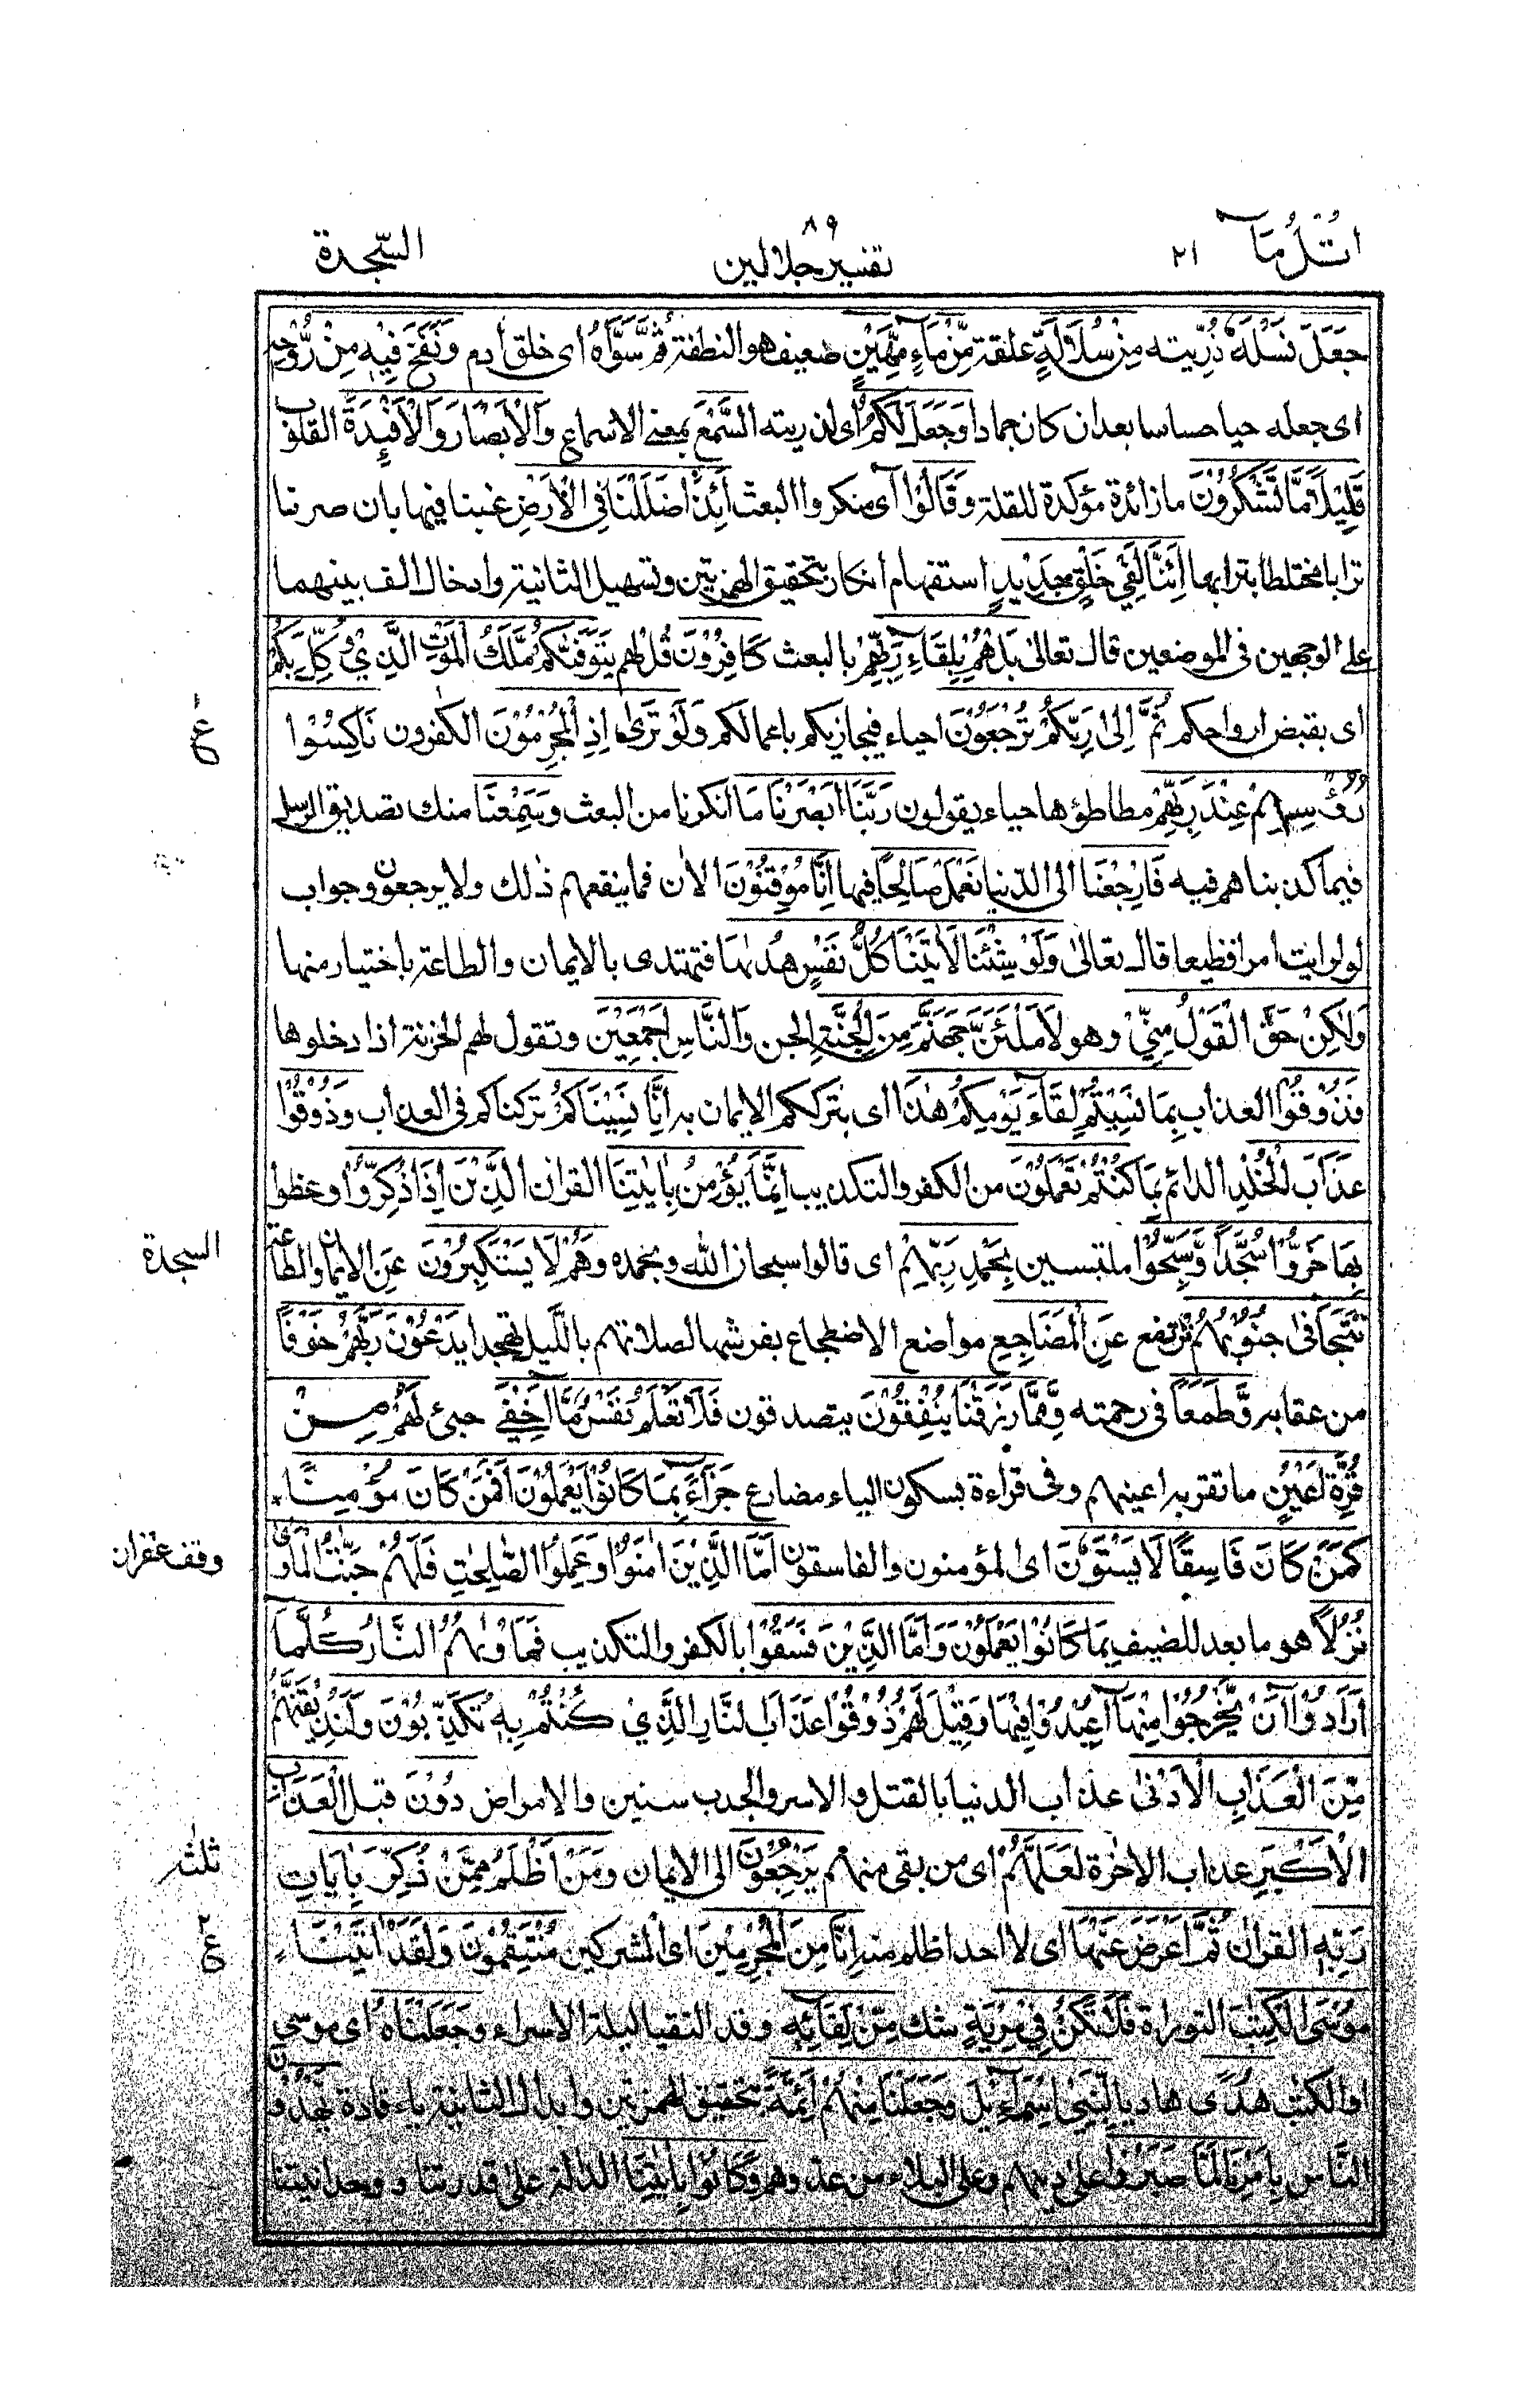 اتْلُ مَآ ٢١
٨٩
تفسير جلالين
السّجدة
جَعَلَ نَسْلَهٗ ذُرِّيته مِنْ سُلَالَةٍ علقة مِّنْ مَّآءٍ مَّهِيْنٍ ضعيف هو النطفة ثُمَّ سَوّٰاهُ اى خلق ادم وَنَفَخَ فِيْهِ مِنْ رُّوْحِهٖ
اى جعله حيا حساسا بعد ان كان جمادا وَجَعَلَ لَكُمُ اى لذريته السَّمْعَ بمعنى الاسماع وَالْاَبْصَارَ وَالْاَفْئِدَةَ القلوب
قَلِيْلًا مَّا تَشْكُرُوْنَ ما زائدة مؤكدة للقلة وَقَالُوْآ اى منكروا البعث ءَاِذَا ضَلَلْنَا فِى الْاَرْضِ غبنا فيها بان صرنا
ترابا مختلطا بترابها اَئِنَّا لَفِيْ خَلْقٍ جَدِيْدٍ استفهام انكار بتحقيق الهمزتين وتسهيل الثانية وادخال الف بينهما
على الوجهين فى الموضعين قال تعالىٰ بَلْ هُمْ بِلِقَآءِ رَبِّهِمْ بالبعث كَافِرُوْنَ قُلْ لهم يَتَوَفّٰىكُمْ مَّلَكُ الْمَوْتِ الَّذِيْ وُكِّلَ بِكُمْ
اى بقبض ارواحكم ثُمَّ اِلىٰ رَبِّكُمْ تُرْجَعُوْنَ احياء فيجازيكم باعمالكم وَلَوْ تَرٰى اِذِ الْمُجْرِمُوْنَ الكفرون نَاكِسُوْا
رُءُوْسِهِمْ عِنْدَ رَبِّهِمْ مطاطؤها حياء يقولون رَبَّنَا اَبْصَرْنَا مَا انكرنا من البعث وَسَمِعْنَا منك تصديق الرسل
فيما كذبناهم فيه فَارْجِعْنَا الى الدنيا نَعْمَلْ صَالِحًا فيها اِنَّا مُوْقِنُوْنَ الاٰن فما ينفعهم ذٰلك ولا يرجعون وجواب
لو لرايت امرا فظيعا قال تعالىٰ وَلَوْ شِئْنَا لَاٰتَيْنَا كُلَّ نَفْسٍ هُدٰىهَا فتهتدى بالايمان والطاعة باختيار منها
وَلٰكِنْ حَقَّ الْقَوْلُ مِنِّيْ وهو لَاَمْلَئَنَّ جَهَنَّمَ مِنَ الْجِنَّةِ الجن وَالنَّاسِ اَجْمَعِيْنَ وتقول لهم الخزنة اذا دخلوها
فَذُوْقُوْا العذاب بِمَا نَسِيْتُمْ لِقَآءَ يَوْمِكُمْ هٰذَا اى بترككم الايمان به اِنَّا نَسِيْنَاكُمْ تركناكم فى العذاب وَذُوْقُوْا
عَذَابَ الْخُلْدِ الدائم بِمَا كُنْتُمْ تَعْمَلُوْنَ من الكفر والتكذيب اِنَّمَا يُؤْمِنُ بِاٰيٰتِنَا القراٰن الَّذِيْنَ اِذَا ذُكِّرُوْا وعظوا
بِهَا خَرُّوْا سُجَّدًا وَّسَبَّحُوْا ملتبسين بِحَمْدِ رَبِّهِمْ اى قالوا سبحان الله وبحمده وَهُمْ لَا يَسْتَكْبِرُوْنَ عَنِ الايمان والطاعة
السجدة
تَتَجَافٰى جُنُوْبُهُمْ ترتفع عَنِ الْمَضَاجِعِ مواضع الاضطجاع بفرشها لصلاتهم بالليل تهجدا يَدْعُوْنَ رَبَّهُمْ خَوْفًا
من عقابه وَّطَمَعًا فى رحمته وَّمِمَّا رَزَقْنٰهُمْ يُنْفِقُوْنَ يتصدقون فَلَا تَعْلَمُ نَفْسٌ مَّآ اُخْفِيَ خبئ لَهُمْ مِنْ
قُرَّةِ اَعْيُنٍ ما تقر به اعينهم وفى قراءة بسكون الياء مضارع جَزَآءً بِمَا كَانُوْا يَعْمَلُوْنَ اَفَمَنْ كَانَ مُؤْمِنًا
كَمَنْ كَانَ فَاسِقًا لَا يَسْتَوٗنَ اى المؤمنون والفاسقون اَمَّا الَّذِيْنَ اٰمَنُوْا وَعَمِلُوا الصّٰلِحٰتِ فَلَهُمْ جَنّٰتُ الْمَاْوٰى
وقف غفران
نُزُلًا هو ما يعد للضيف بِمَا كَانُوْا يَعْمَلُوْنَ وَاَمَّا الَّذِيْنَ فَسَقُوْا بالكفر والتكذيب فَمَاْوٰىهُمُ النَّارُ كُلَّمَا
اَرَادُوْآ اَنْ يَّخْرُجُوْا مِنْهَآ اُعِيْدُوْا فِيْهَا وَقِيْلَ لَهُمْ ذُوْقُوْا عَذَابَ النَّارِ الَّذِيْ كُنْتُمْ بِهٖ تُكَذِّبُوْنَ وَلَنُذِيْقَنَّهُمْ
مِّنَ الْعَذَابِ الْاَدْنٰى عذاب الدنيا بالقتل والاسر والجدب سنين والامراض دُوْنَ قبل الْعَذَابِ
الْاَكْبَرِ عذاب الاٰخرة لَعَلَّهُمْ اى من بقى منهم يَرْجِعُوْنَ الى الايمان وَمَنْ اَظْلَمُ مِمَّنْ ذُكِّرَ بِاٰيَاتِ
ثلثة
رَبِّهٖ القراٰن ثُمَّ اَعْرَضَ عَنْهَا اى لا احد اظلم منه اِنَّا مِنَ الْمُجْرِمِيْنَ اى المشركين مُنْتَقِمُوْنَ وَلَقَدْ اٰتَيْنَا
مُوْسَى الْكِتٰبَ التوراة فَلَا تَكُنْ فِيْ مِرْيَةٍ شك مِّنْ لِّقَآئِهٖ وقد التقيا ليلة الاسراء وَجَعَلْنَاهُ اى موسى
او الكتٰب هُدًى هاديا لِّبَنِيْٓ اِسْرَآءِيْلَ وَجَعَلْنَا مِنْهُمْ اَئِمَّةً بتحقيق الهمزتين وابدال الثانية ياء قادة يَّهْدُوْنَ
النَّاس بِاَمْرِنَا لَمَّا صَبَرُوْا على دينهم وعلى البلاء من عدوهم وَكَانُوْا بِاٰيٰتِنَا الدالة على قدرتنا ووحدانيتنا